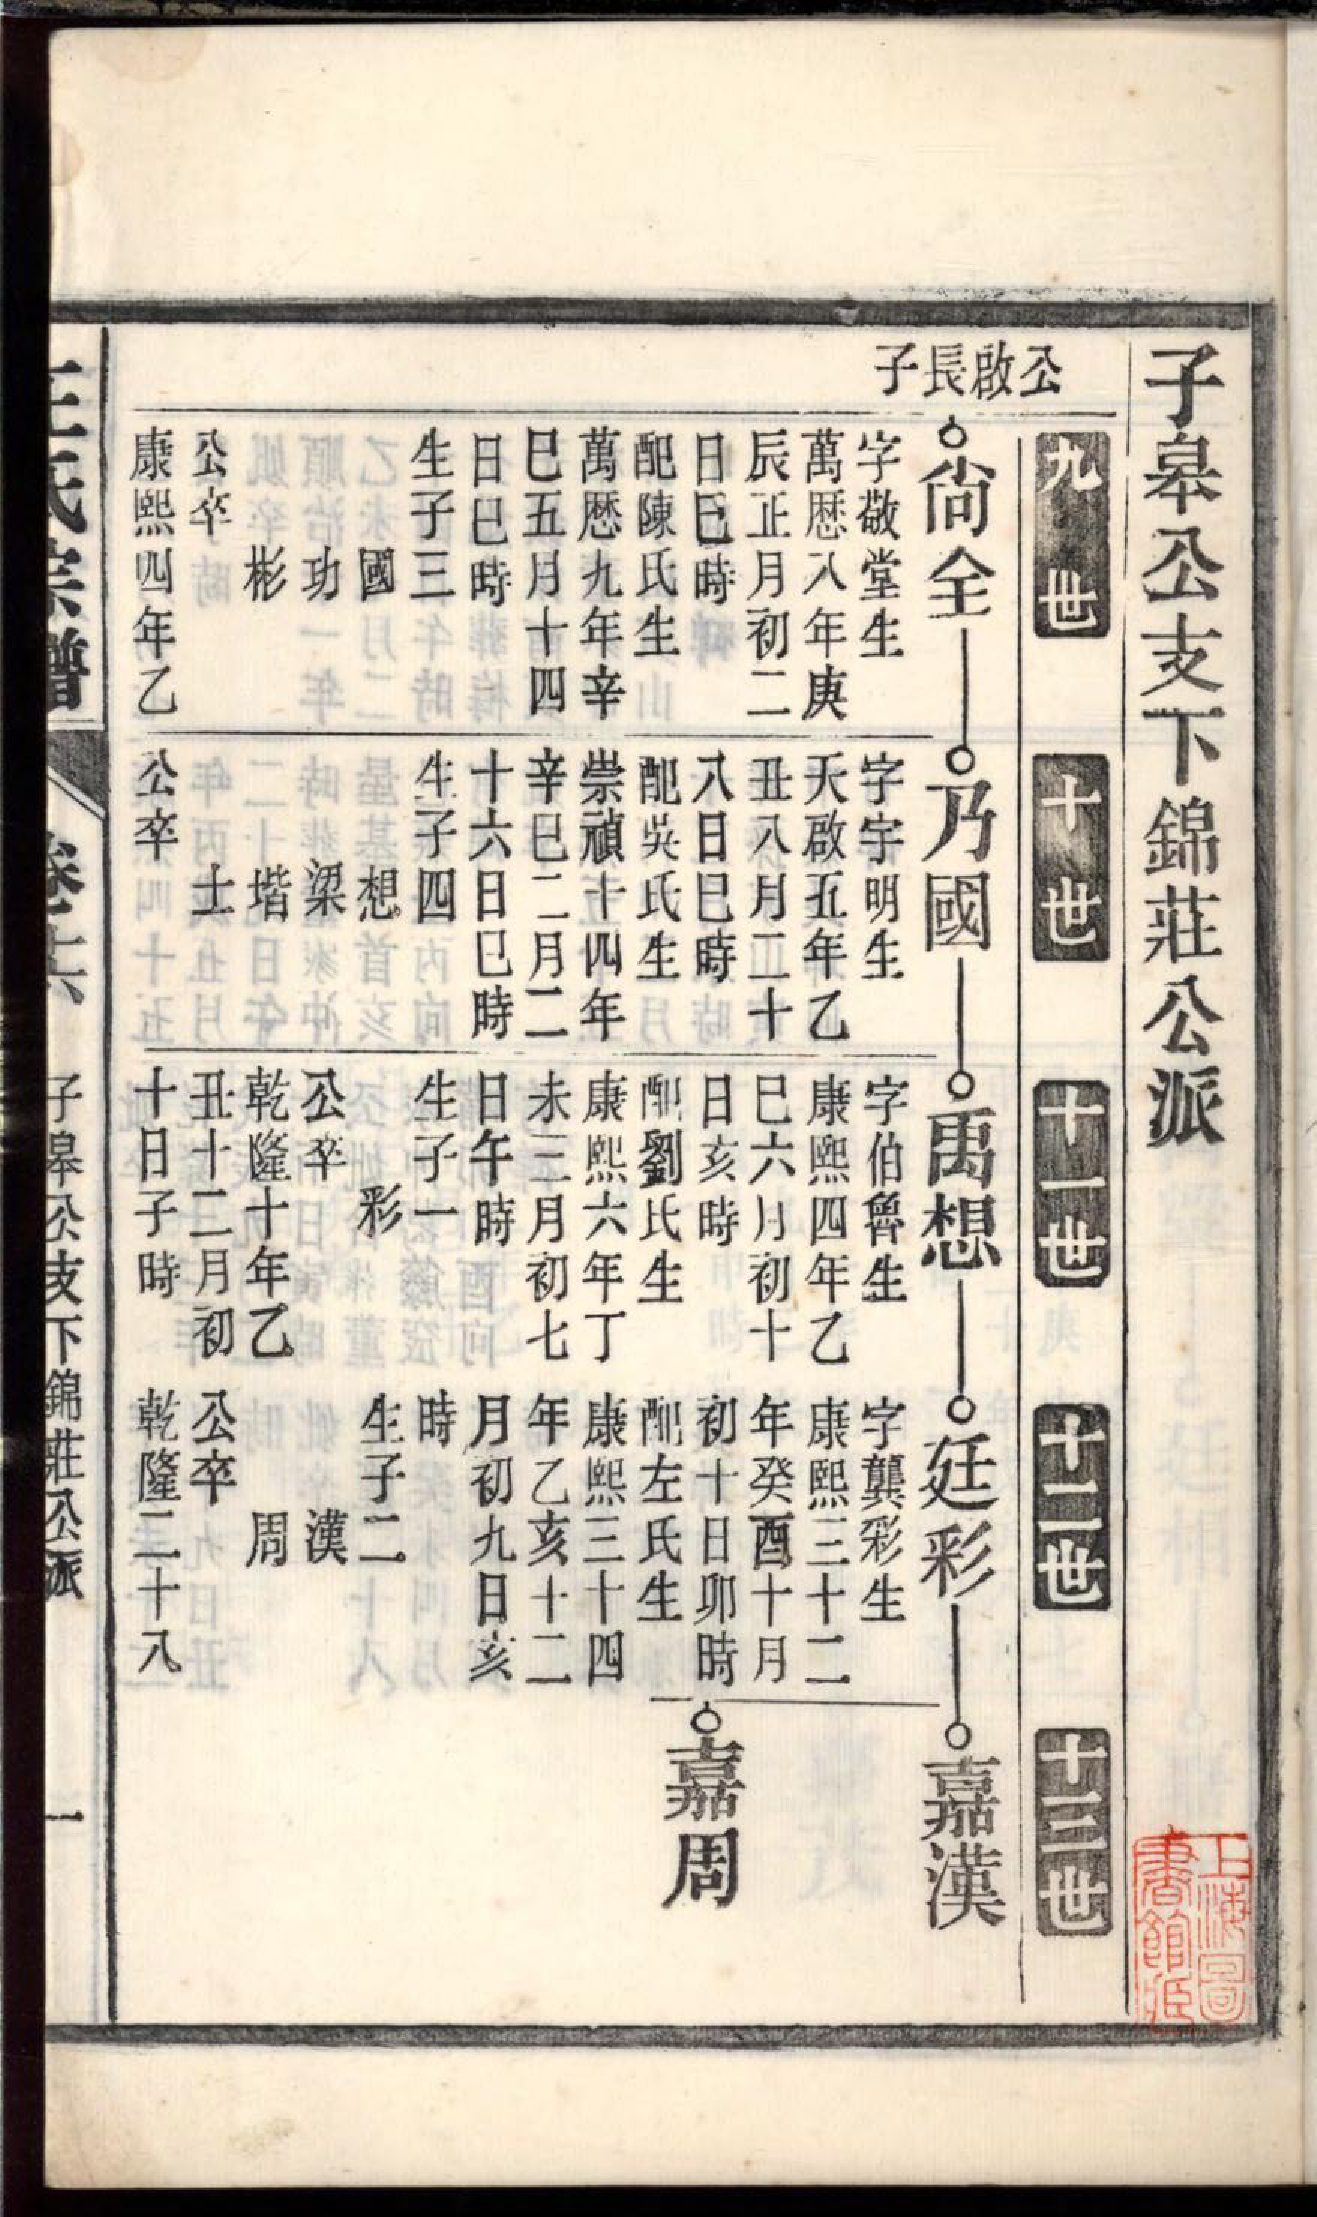 子皋公支下錦莊公派
九世
十世
十一世
十二世
十三世
公啟長子
尙全
字敬堂生
萬厯八年庚
辰正月初二
日巳時
配陳氏生
萬厯九年辛
巳五月十四
日巳時
生子三
國
功
彬
公卒
康熙四年乙
乃國
字宇明生
天啟五年乙
丑八月二十
八日巳時
配吳氏生
崇禎十四年
辛巳二月二
十六日巳時
生子四
想
梁
堦
士
公卒
禹想
字伯魯生
康熙四年乙
巳六月初十
日亥時
配劉氏生
康熙六年丁
未三月初七
日午時
生子一
彩
公卒
乾隆十年乙
丑十二月初
十日子時
廷彩
字龔彩生
康熙三十二
年癸酉十月
初十日卯時
配左氏生
康熙三十四
年乙亥十二
月初九日亥
時
生子二
漢
周
公卒
乾隆二十八
嘉漢
嘉周
王氏宗譜
卷十六
子皋公支下錦莊公派
一
上海圖
書館藏